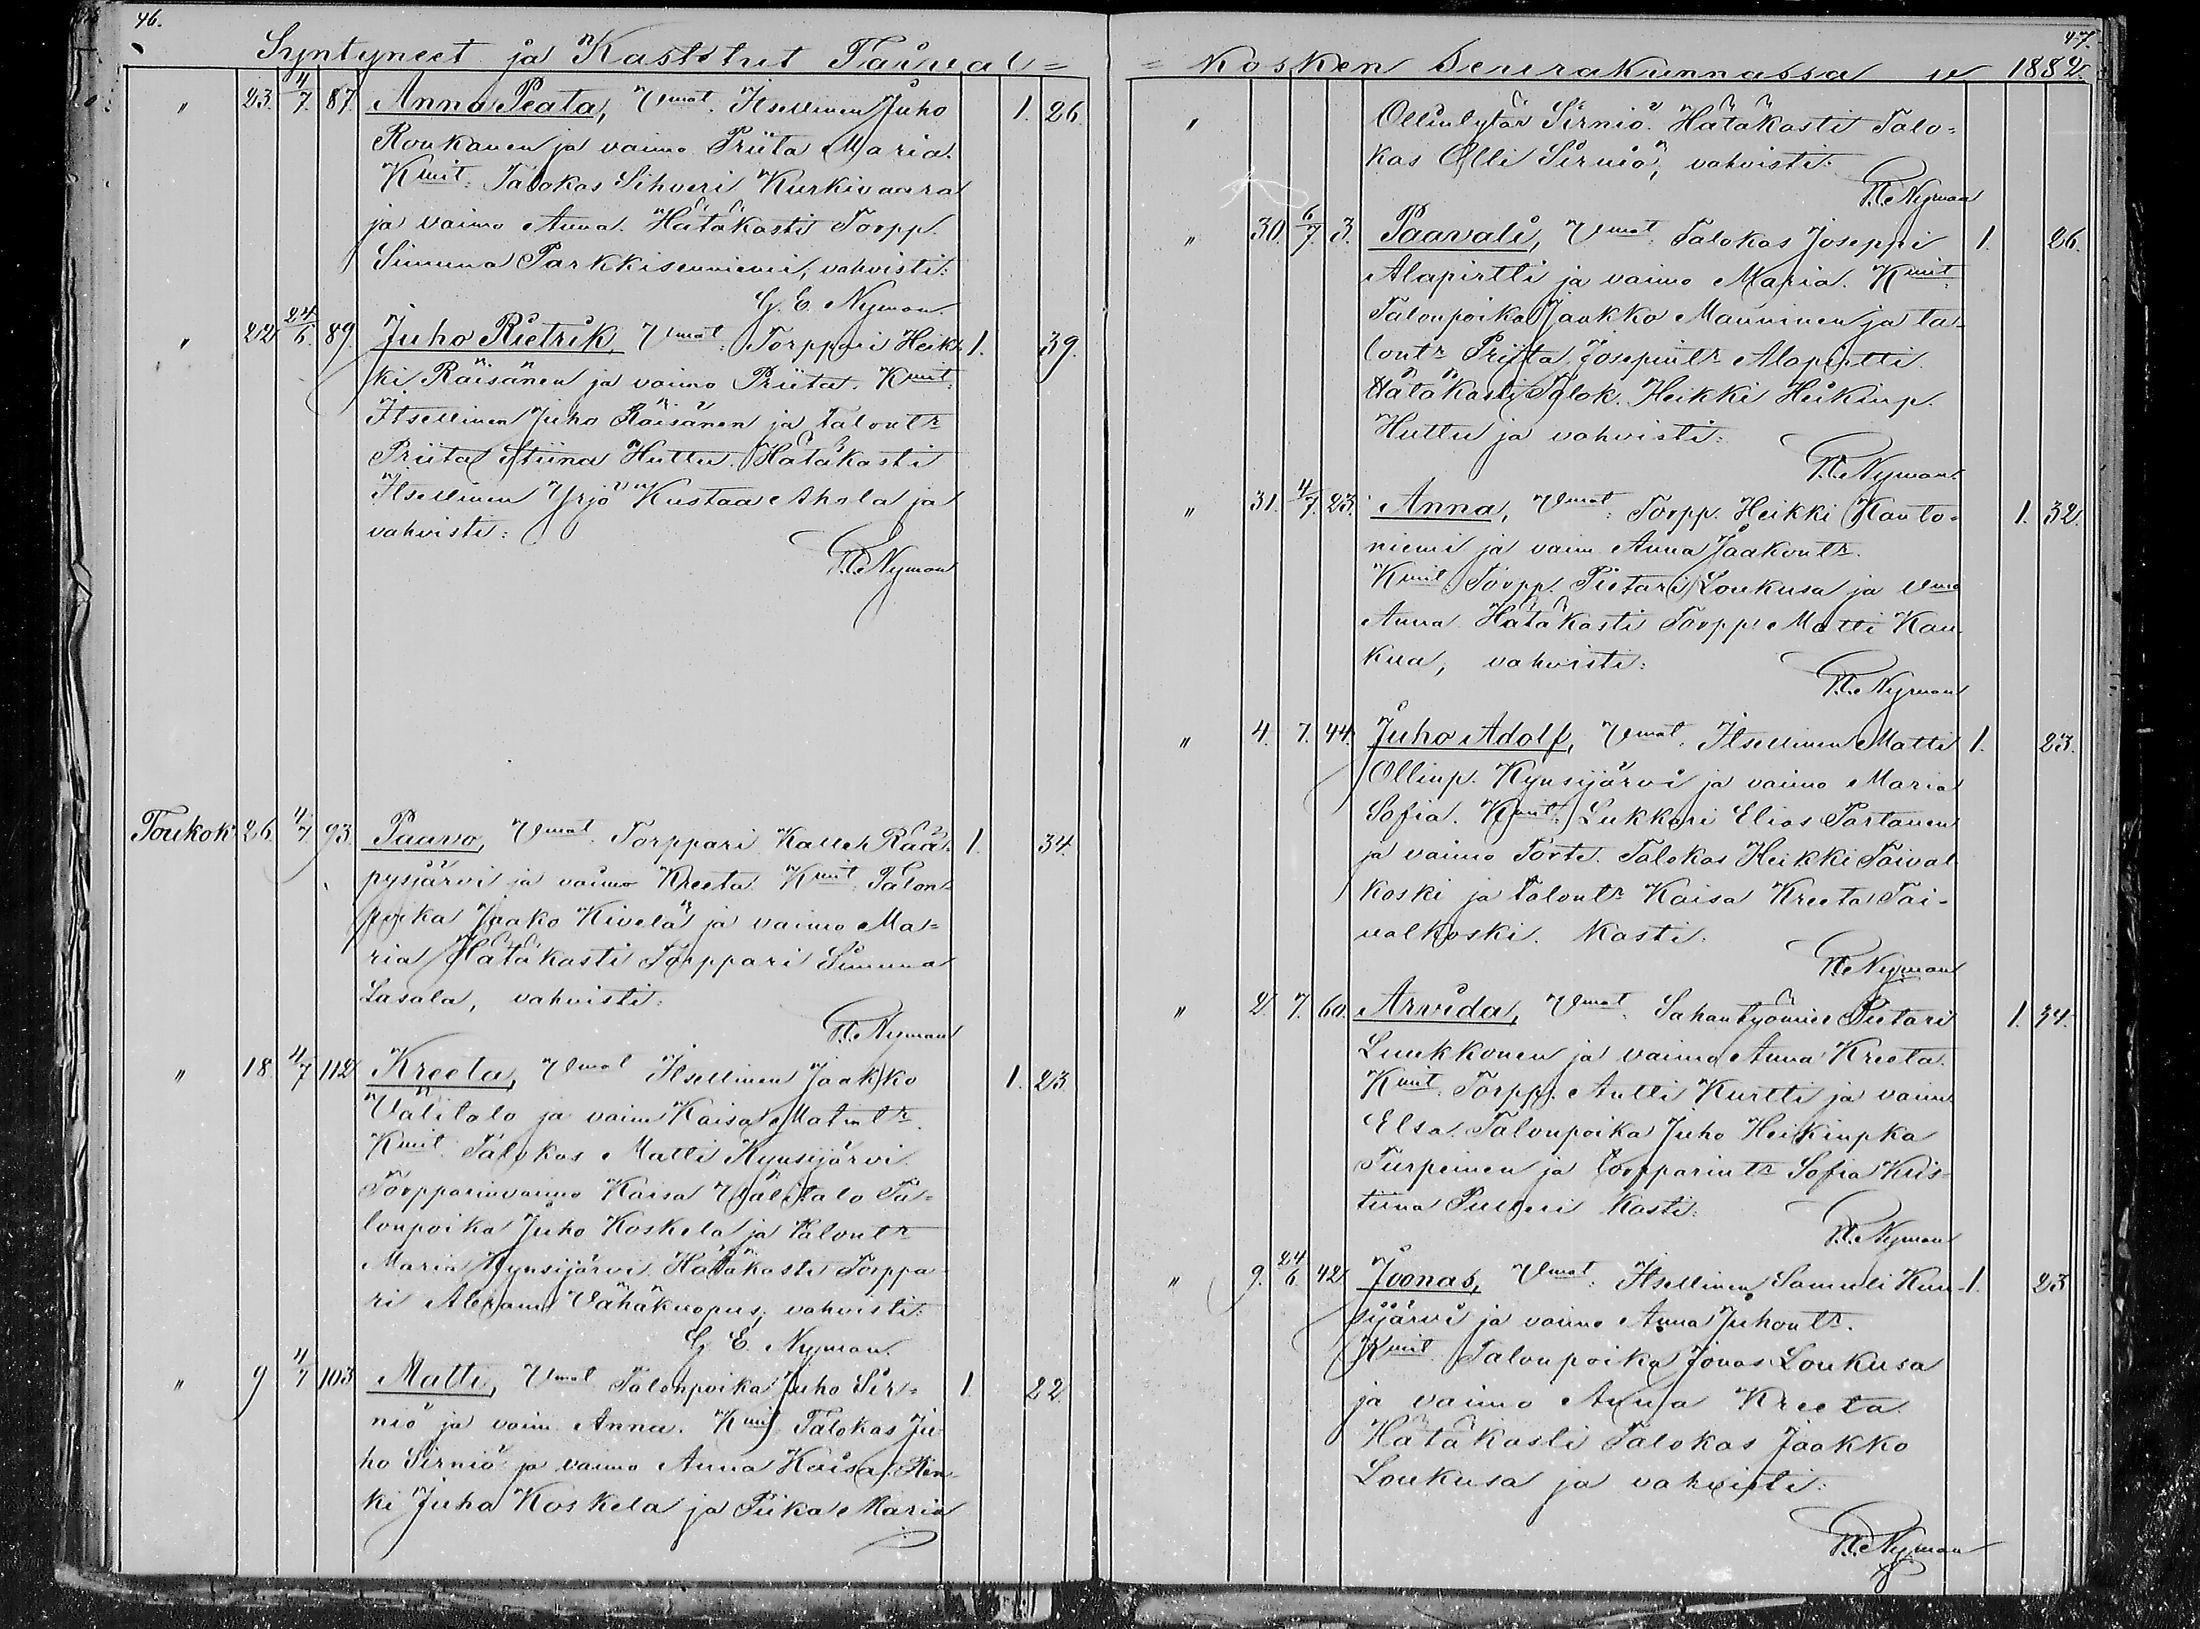 46.
Syntyneet ja Kastetut Taival=
" 23. 4/7. 87. Anna Peata, Vmat. Itsellinen Juho 1. 26.
Ronkanen ja vaimo Priita Maria.
Kmit: Talokas Sihveri Kurkivaara
ja vaimo Anna. Hätäkasti Torpp.
Simuna Parkkisenniemi, vahvisti:
G. E. Nyman.
" 22 24/6. 89. Juho Rietrik, Vmat: Torppari Heik- 1. 39.
ki Räisänen ja vaimo Priita. Kmit.
Itsellinen Juho Räisänen ja talontr
Priita Stiina Huttu. Hätäkasti
Itsellinen Yrjö Kustaa Ahola ja
vahvisti:
Nyman
Toukok. 26. 4/7 93. Paavo, Vmat. Torppari Kalle Rää- 1. 34.
pysjärvi ja vaimo Kreeta. Kmit Talon-
poika Jaako Kivelä ja vaimo Ma=
ria Hätäkasti Torppari Simuna
Lasala, vahvisti:
Nyman
" 18. 4/7 112 Kreeta, Vmat Itsellinen Jaakko 1. 23.
Välitalo ja vaim Kaisa Matintr.
Kmit. Talokas Matti Kynsijärvi.
Torpparinvaimo Kaisa Välitalo Ta=
lonpoika Juho Koskela ja talontr
Maria Kynsijärvi. Hätäkasti Torppa-
ri Abram Vähäkuopus, vahvisti:
G. E. Nyman.
" 9 4/7 103 Matti, Vmat Talonpoika Juho Sir= 1. 22.
niö ja vaim Anna. Kmit Talokas Ju-
ho Sirniö ja vaimo Anna Kaisa. Ren-
ki Juha Koskela ja Piika Maria
47.
= Kosken Seurakunnassa v 1882.
" Ollintytär Sirniö. Hätäkasti Talo=
kas Olli Sirniö, vahvisti:
Nyman
" 30. 6/7. 3. Paavali, Vmat. Talokas Joseppi 1. 26.
Alapirtti ja vaimo Maria. Kmit
Talonpoika Jaakko Manninen ja ta-
lontr Priita Josepintr Alapirtti.
Hätäkasti Talok. Heikki Heikinp.
Huttu ja vahvisti:
Nyman.
" 31. 4/7. 23. Anna, Vmat: Torpp. Heikki Kanto= 1. 32.
niemi ja vaim Anna Jaakontr.
Kmit Torpp. Pietari Loukusa ja Vmo
Anna Hätäkasti Torpp. Matti Kau-
kua, vahvisti:
Nyman
" 4. 7. 44. Juho Adolf, Vmat. Itsellinen Matti 1. 23.
Ollinp. Kynsijärvi ja vaimo Maria
Sofia. Kmit. Lukkari Elias Partanen
ja vaimo Torte. Talokas Heikki Taival
koski ja talontr Kaisa Kreeta Tai-
valkoski. Kasti:
Nyman
" 2. 7. 60. Arvida, Vmat. Sahantyömies Pietari 1. 34.
Luukkonen ja vaimo Anna Kreeta.
Kmit. Torpp. Antti Kurtti ja vaim
Elsa. Talonpoika Juho Heikinpka
Turpeinen ja torpparintr Sofia Kris-
tiina Pulteri Kasti:
Nyman
" 9. 24/6 42 Joonas, Vmat: Itsellinen Samuli Kun- 1. 23
sijärvi ja vaimo Anna Juhontr.
Kmit. Talonpoika Jonas Loukusa
ja vaimo Anna Kreeta.
Hätäkasti Talokas Jaakko
Loukusa ja vahvisti:
Nyman